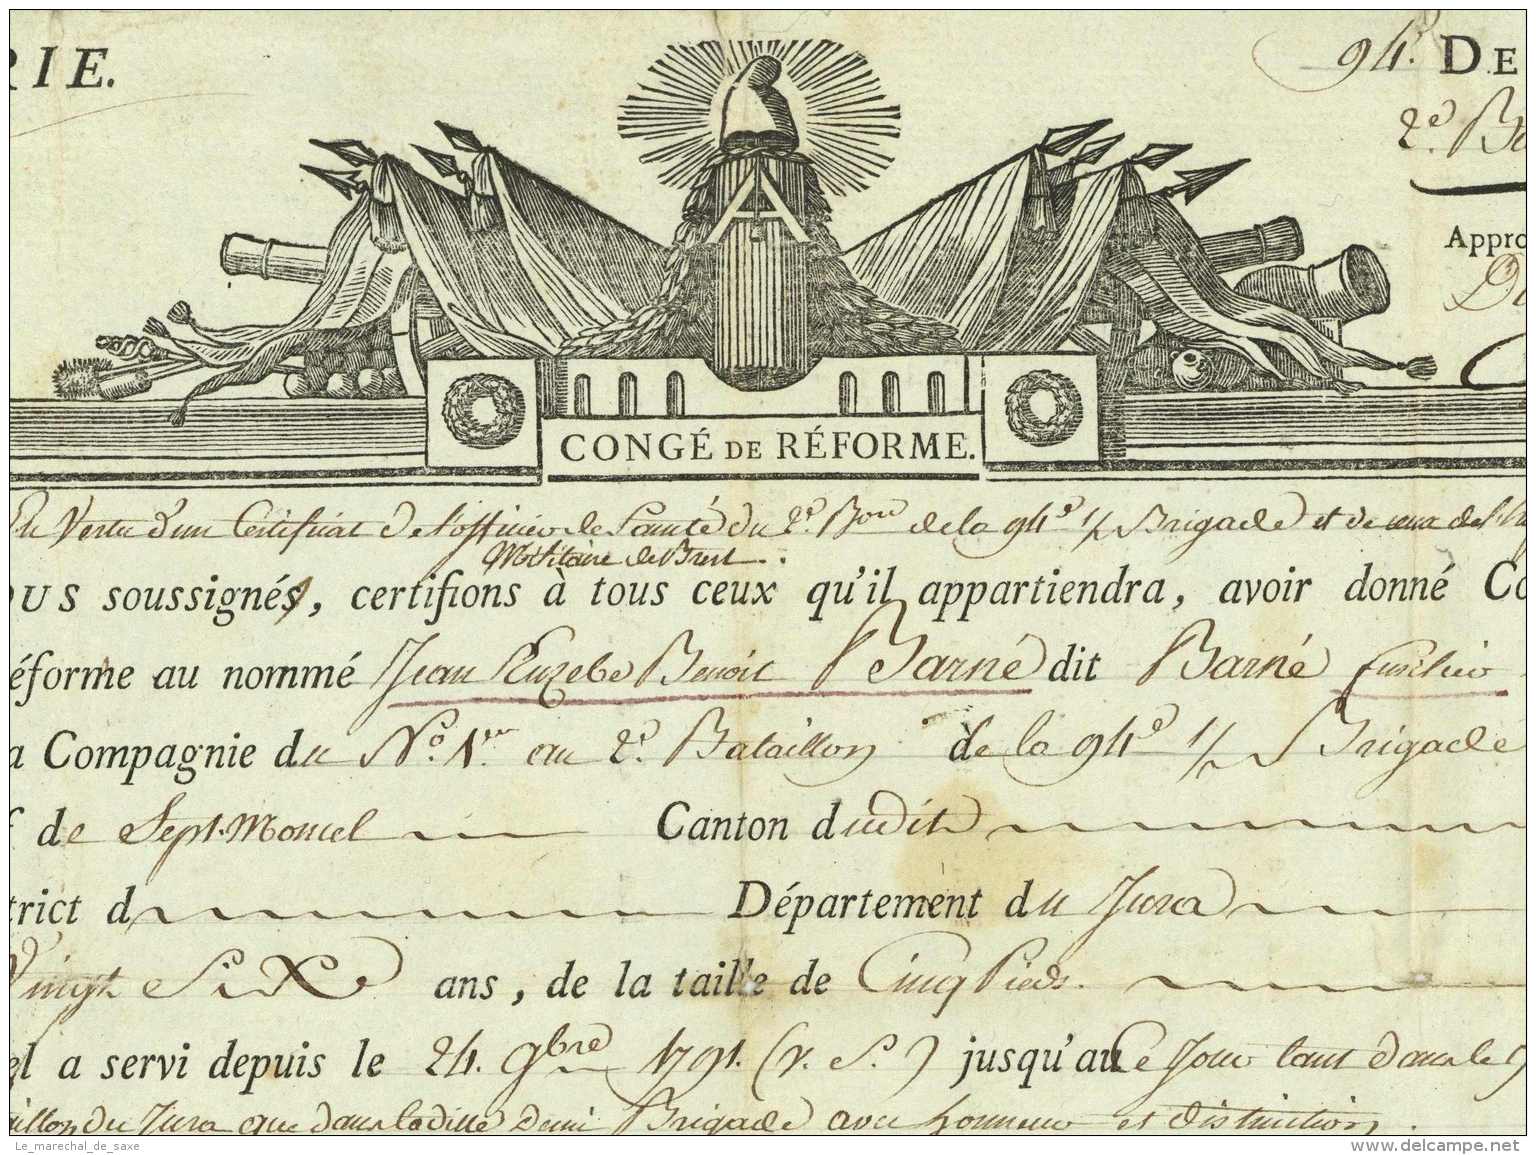 RIE.
94e. DE
2e. B
Appro
CONGÉ DE RÉFORME.
En Vertu d'un Certificat de l'officier de Santé du 2e. Bon de la 94e 1/2 Brigade et de ceux de l'
Militaire de Brest
OUS soussignés, certifions à tous ceux qu'il appartiendra, avoir donné Co
éforme au nommé Jean Euzebe Benoit Barné dit Barné fusilier
a Compagnie du No. 1er au 2e. Bataillon de la 94e 1/2 Brigade
f de Sept-Moncel Canton dudit
trict d Département du Jura
Vingt Six ans, de la taille de Cinq Pieds.
el a servi depuis le 24. 9bre 1791. (v. S.) jusqu'au Ce Jour tant dans le
aillon du Jura que dans laditte demi Brigade avec honneur et distinction.
Le_marechal_de_saxe
www.delcampe.net